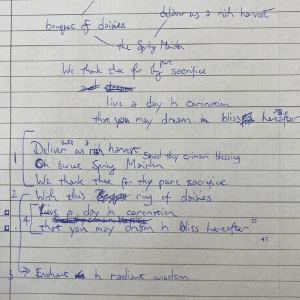 deliver us a rich harvest
bouquet of daisies
the Spring Maiden
We thank thee for thy pure sacrifice
live a day in coronation
that you may dream in bliss hereafter
1 Deliver unto us a rich harvest
Send thy crimson blessing
Oh sweet Spring Maiden
We thank thee for thy pure sacrifice
2 With this ring of daisies
4 Live a day in coronation
that you may dream in bliss hereafter
3 → radiant wisdom